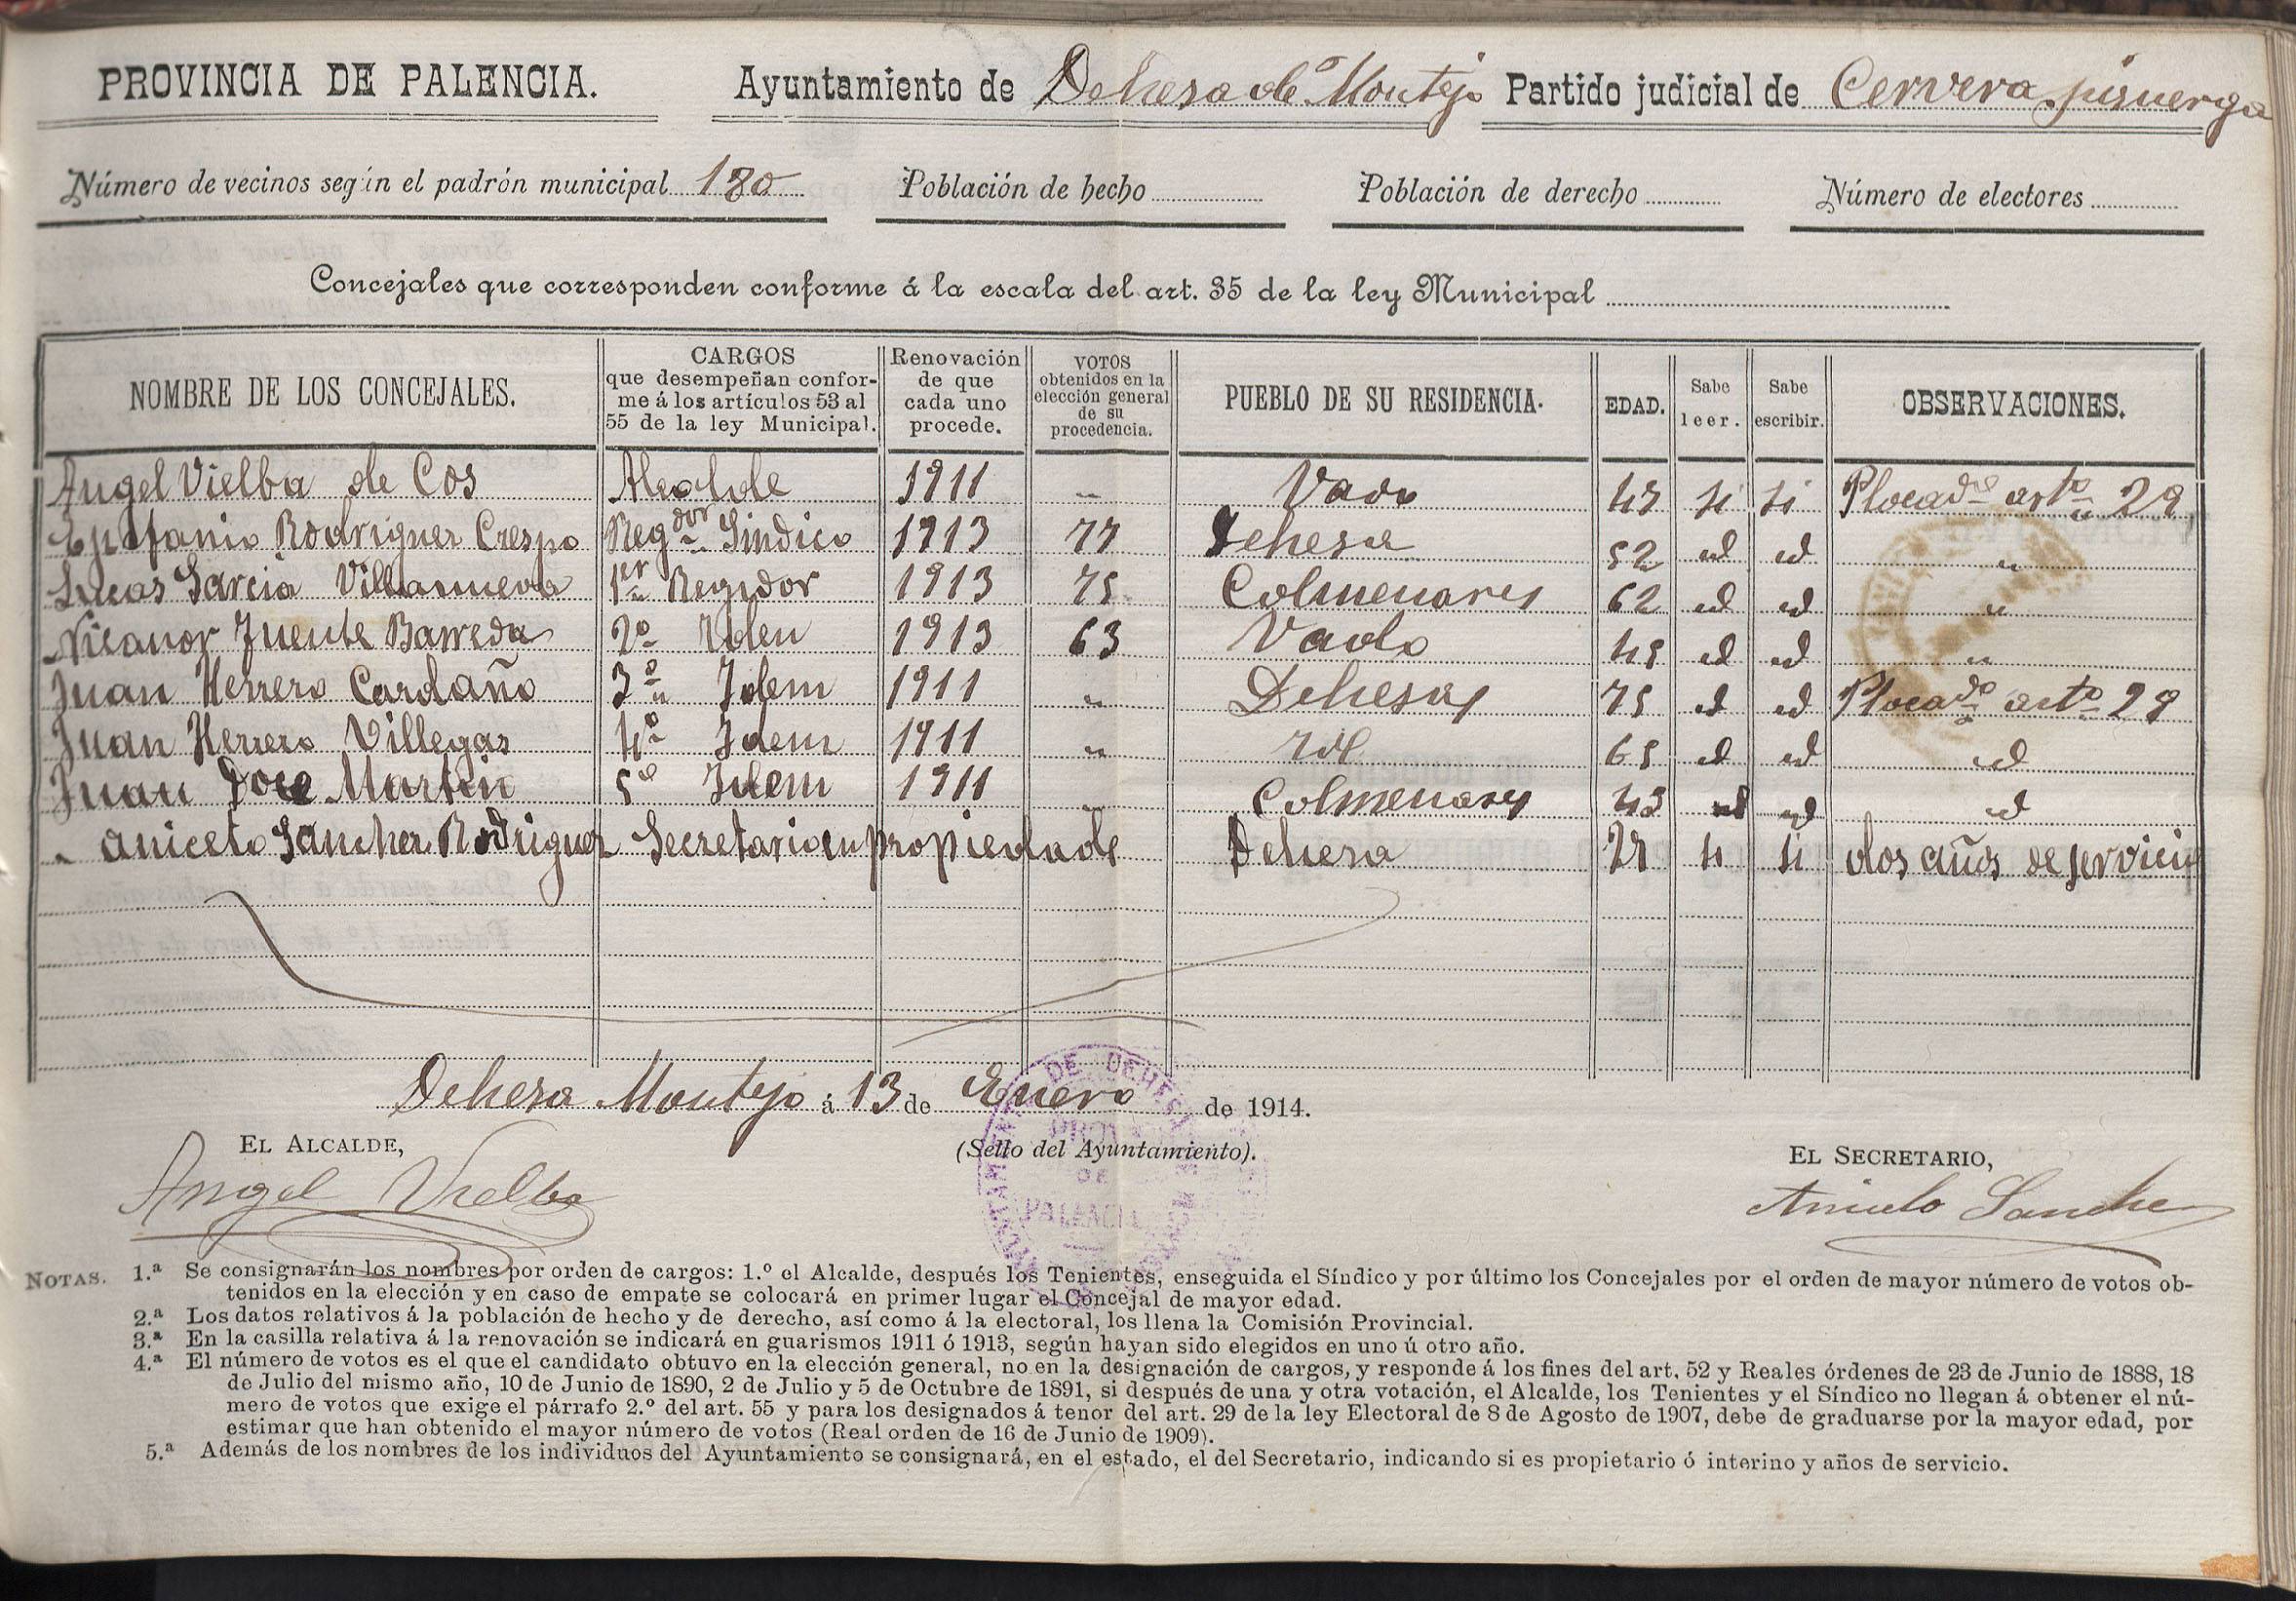 PROVINCIA DE PALENCIA. Ayuntamiento de Dehesa de Montejo Partido judicial de Cervera pisuerga
Número de vecinos según el padrón municipal 180 Población de hecho Población de derecho Número de electores
Concejales que corresponden conforme á la escala del art. 35 de la ley Municipal
NOMBRE DE LOS CONCEJALES. CARGOS que desempeñan conforme á los artículos 53 al 55 de la ley Municipal. Renovación de que cada uno procede. VOTOS obtenidos en la elección general de su procedencia. PUEBLO DE SU RESIDENCIA. EDAD. Sabe leer. Sabe escribir. OBSERVACIONES.
Angel Vielba de Cos Alcalde 1911 " Vado si si art.º 29
Epifanio Rodriguez Crespo Regdor Sindico 1913 77 Dehesa 52 id id "
Lucas Garcia Villanueva 1er Regidor 1913 75 Colmenares 62 id id "
Nicanor Fuente Barreda 2º Iden 1913 63 Vado id id "
Juan Herrero Cardaño 3º Idem 1911 " Dehesa 75 id id art.º 29
Juan Herrero Villegas 4º Idem 1911 " Id 65 id id id
Juan Doce Martin 5º Idem 1911 " Colmenares 43 id id id
Aniceto Sanchez Rodriguez Secretario en propiedade Dehesa si si dos años de servicio
Dehesa Montejo á 13 de Enero de 1914.
EL ALCALDE, (Sello del Ayuntamiento). EL SECRETARIO,
Angel Vielba Aniceto Sanche
DE DEHESA
PALENCIA
NOTAS. 1.ª Se consignarán los nombres por orden de cargos: 1.º el Alcalde, después los Tenientes, enseguida el Síndico y por último los Concejales por el orden de mayor número de votos ob-
tenidos en la elección y en caso de empate se colocará en primer lugar el Concejal de mayor edad.
2.ª Los datos relativos á la población de hecho y de derecho, así como á la electoral, los llena la Comisión Provincial.
3.ª En la casilla relativa á la renovación se indicará en guarismos 1911 ó 1913, según hayan sido elegidos en uno ú otro año.
4.ª El número de votos es el que el candidato obtuvo en la elección general, no en la designación de cargos, y responde á los fines del art. 52 y Reales órdenes de 23 de Junio de 1888, 18
de Julio del mismo año, 10 de Junio de 1890, 2 de Julio y 5 de Octubre de 1891, si después de una y otra votación, el Alcalde, los Tenientes y el Síndico no llegan á obtener el nú-
mero de votos que exige el párrafo 2.º del art. 55 y para los designados á tenor del art. 29 de la ley Electoral de 8 de Agosto de 1907, debe de graduarse por la mayor edad, por
estimar que han obtenido el mayor número de votos (Real orden de 16 de Junio de 1909).
5.ª Además de los nombres de los individuos del Ayuntamiento se consignará, en el estado, el del Secretario, indicando si es propietario ó interino y años de servicio.